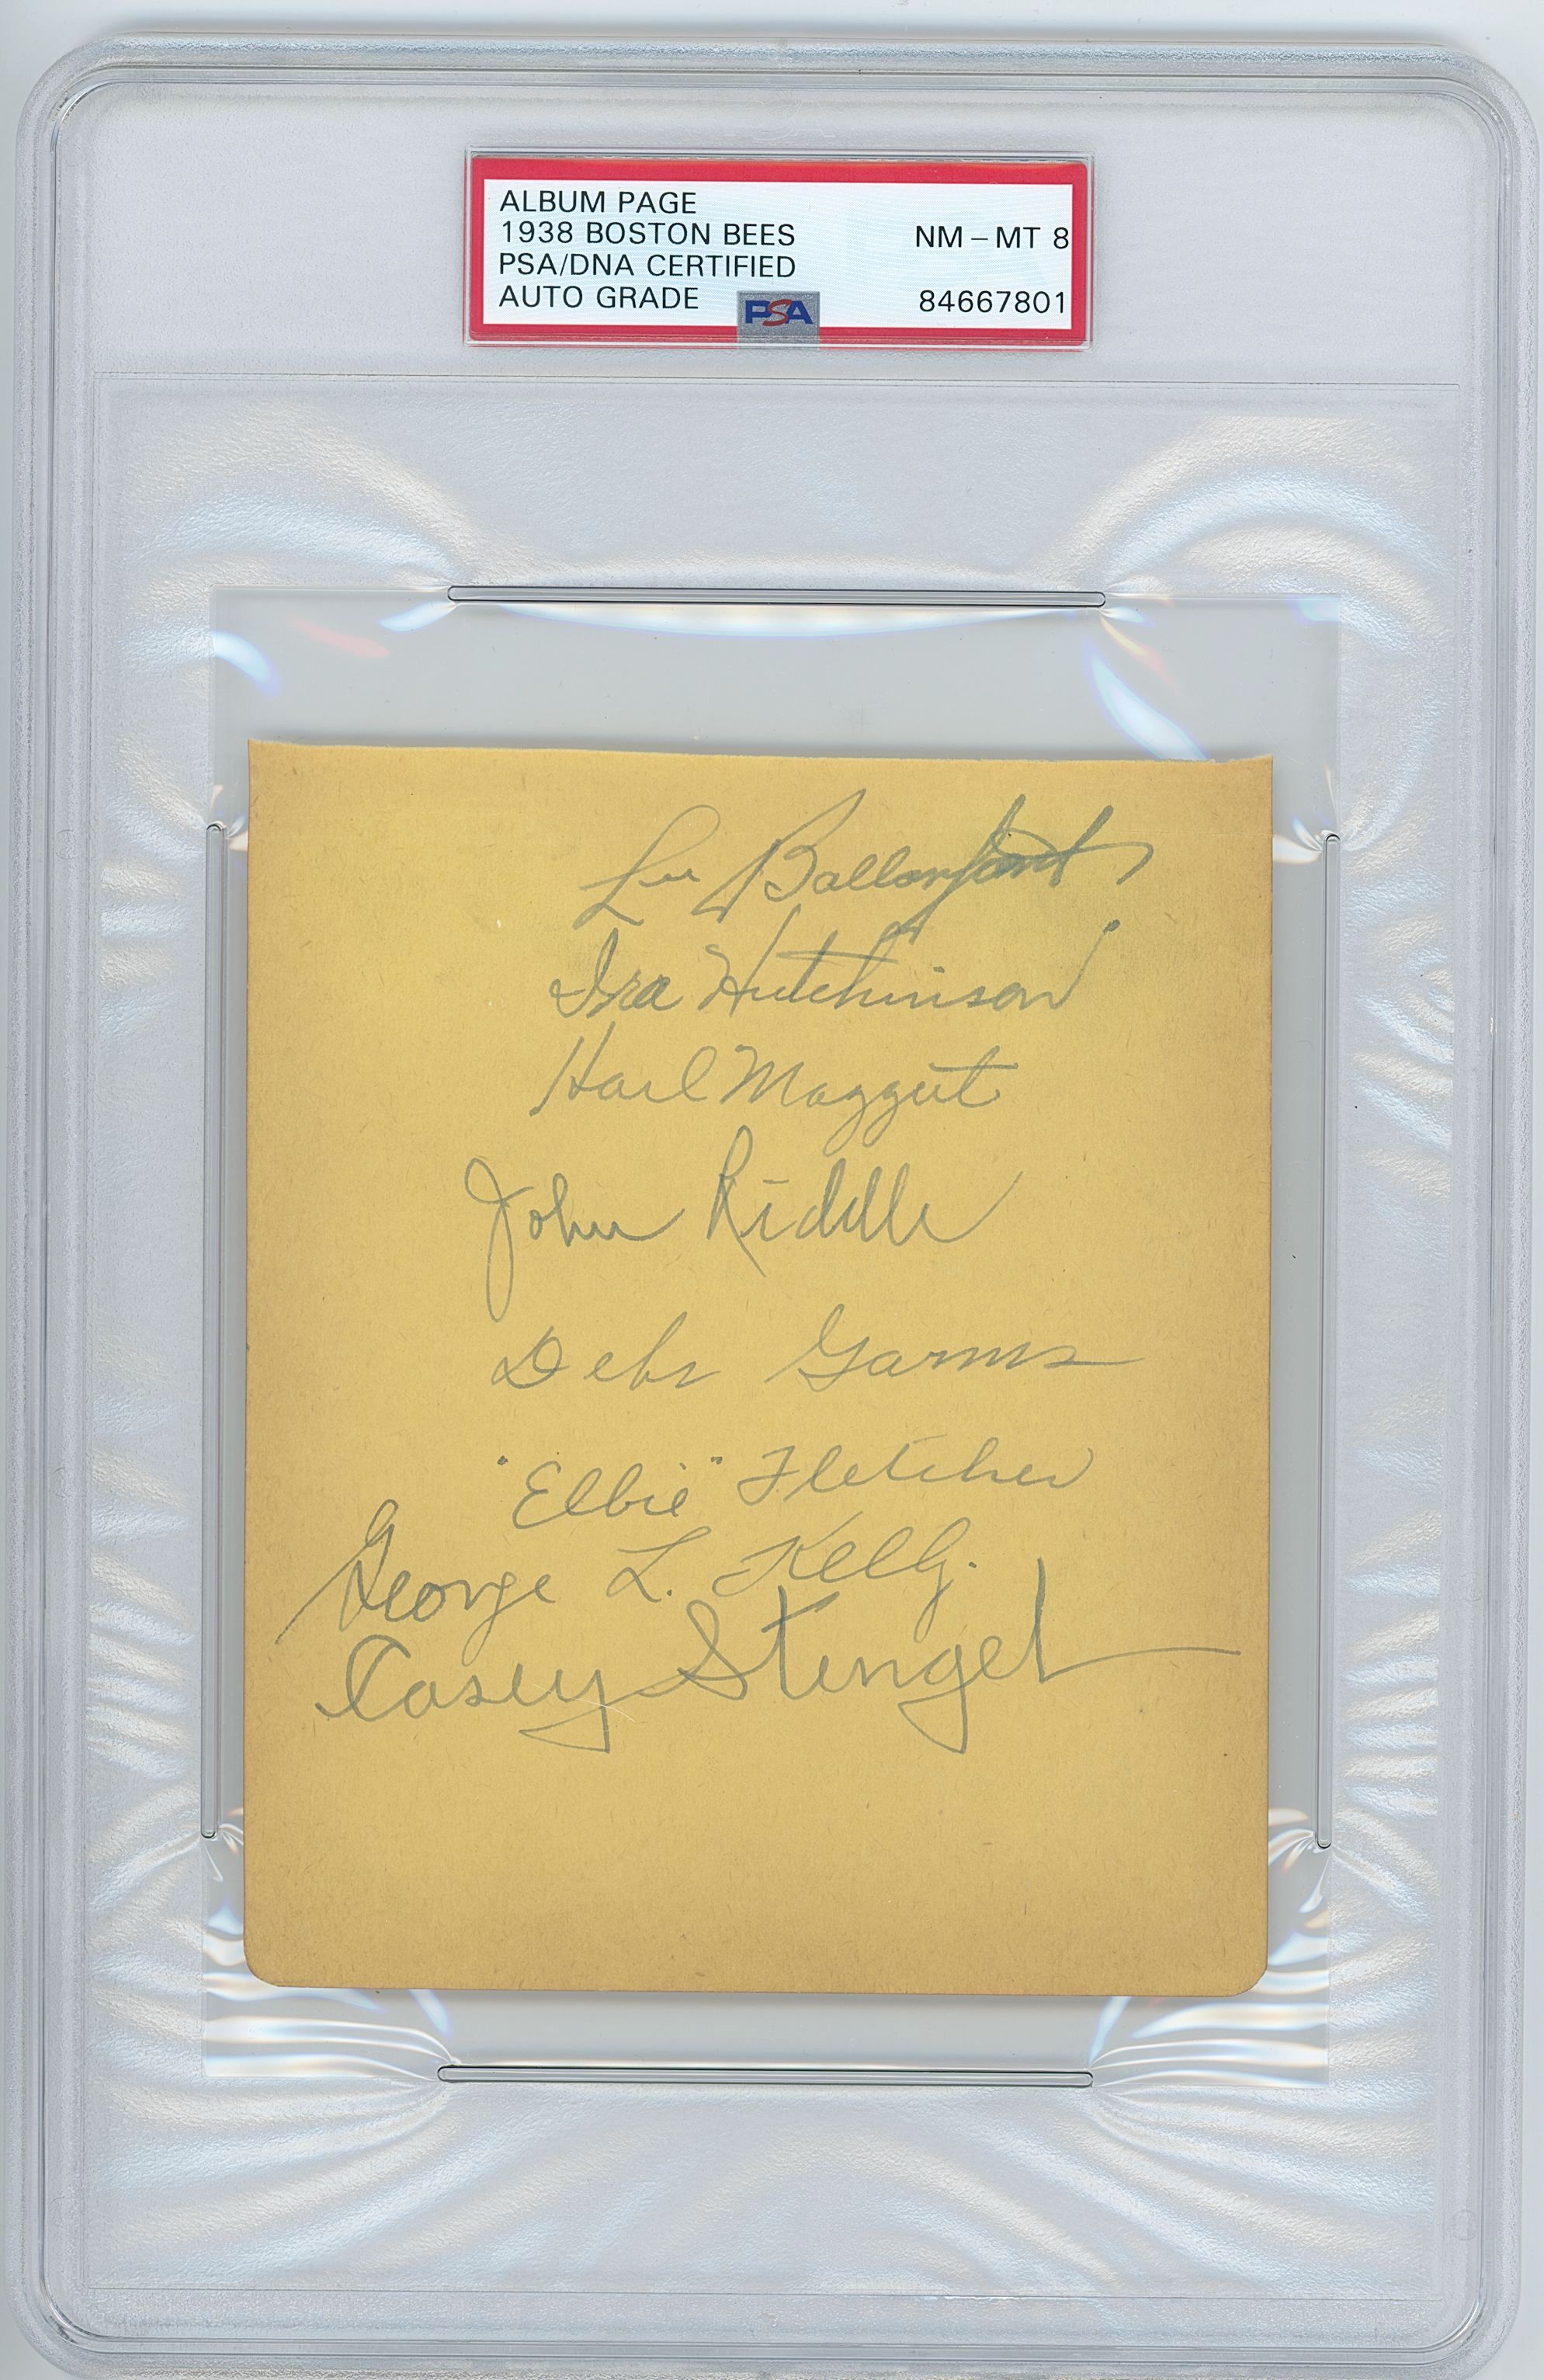 ALBUM PAGE
1938 BOSTON BEES NM - MT 8
PSA/DNA CERTIFIED
AUTO GRADE 84667801
PSA
Lee Ballanfant
Ira Hutchinson
Harl Maggert
John Riddle
Debs Garms
"Elbie" Fletcher
George L. Kelly.
Casey Stengel